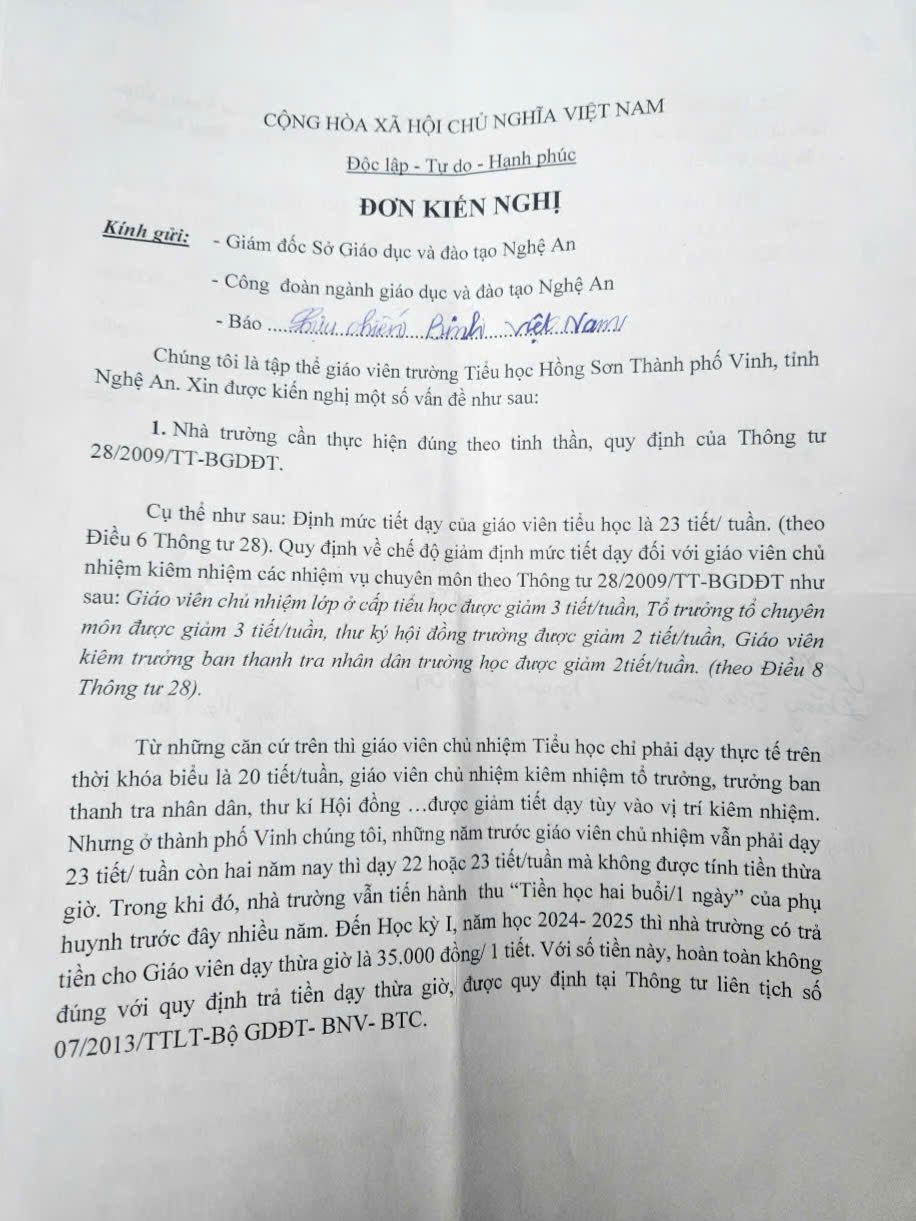 CỘNG HÒA XÃ HỘI CHỦ NGHĨA VIỆT NAM
Độc lập - Tự do - Hạnh phúc
ĐƠN KIẾN NGHỊ
Kính gửi: - Giám đốc Sở Giáo dục và đào tạo Nghệ An
- Công đoàn ngành giáo dục và đào tạo Nghệ An
- Báo ....Cựu chiến Binh Việt Nam
Chúng tôi là tập thể giáo viên trường Tiểu học Hồng Sơn Thành phố Vinh, tỉnh
Nghệ An. Xin được kiến nghị một số vấn đề như sau:
1. Nhà trường cần thực hiện đúng theo tinh thần, quy định của Thông tư
28/2009/TT-BGDĐT.
Cụ thể như sau: Định mức tiết dạy của giáo viên tiểu học là 23 tiết/ tuần. (theo
Điều 6 Thông tư 28). Quy định về chế độ giảm định mức tiết dạy đối với giáo viên chủ
nhiệm kiêm nhiệm các nhiệm vụ chuyên môn theo Thông tư 28/2009/TT-BGDĐT như
sau: Giáo viên chủ nhiệm lớp ở cấp tiểu học được giảm 3 tiết/tuần, Tổ trưởng tổ chuyên
môn được giảm 3 tiết/tuần, thư ký hội đồng trường được giảm 2 tiết/tuần, Giáo viên
kiêm trưởng ban thanh tra nhân dân trường học được giảm 2tiết/tuần. (theo Điều 8
Thông tư 28).
Từ những căn cứ trên thì giáo viên chủ nhiệm Tiểu học chỉ phải dạy thực tế trên
thời khóa biểu là 20 tiết/tuần, giáo viên chủ nhiệm kiêm nhiệm tổ trưởng, trưởng ban
thanh tra nhân dân, thư kí Hội đồng ...được giảm tiết dạy tùy vào vị trí kiêm nhiệm.
Nhưng ở thành phố Vinh chúng tôi, những năm trước giáo viên chủ nhiệm vẫn phải dạy
23 tiết/ tuần còn hai năm nay thì dạy 22 hoặc 23 tiết/tuần mà không được tính tiền thừa
giờ. Trong khi đó, nhà trường vẫn tiến hành thu “Tiền học hai buổi/1 ngày” của phụ
huynh trước đây nhiều năm. Đến Học kỳ I, năm học 2024- 2025 thì nhà trường có trả
tiền cho Giáo viên dạy thừa giờ là 35.000 đồng/ 1 tiết. Với số tiền này, hoàn toàn không
đúng với quy định trả tiền dạy thừa giờ, được quy định tại Thông tư liên tịch số
07/2013/TTLT-Bộ GDĐT- BNV- BTC.